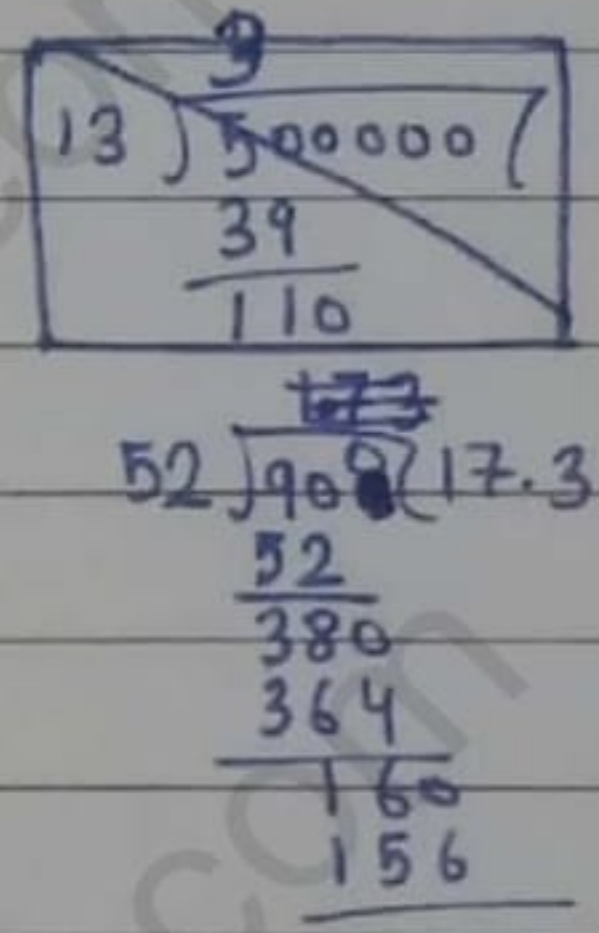 3
13)500000(
39
110
52)900(17.3
52
380
364
160
156